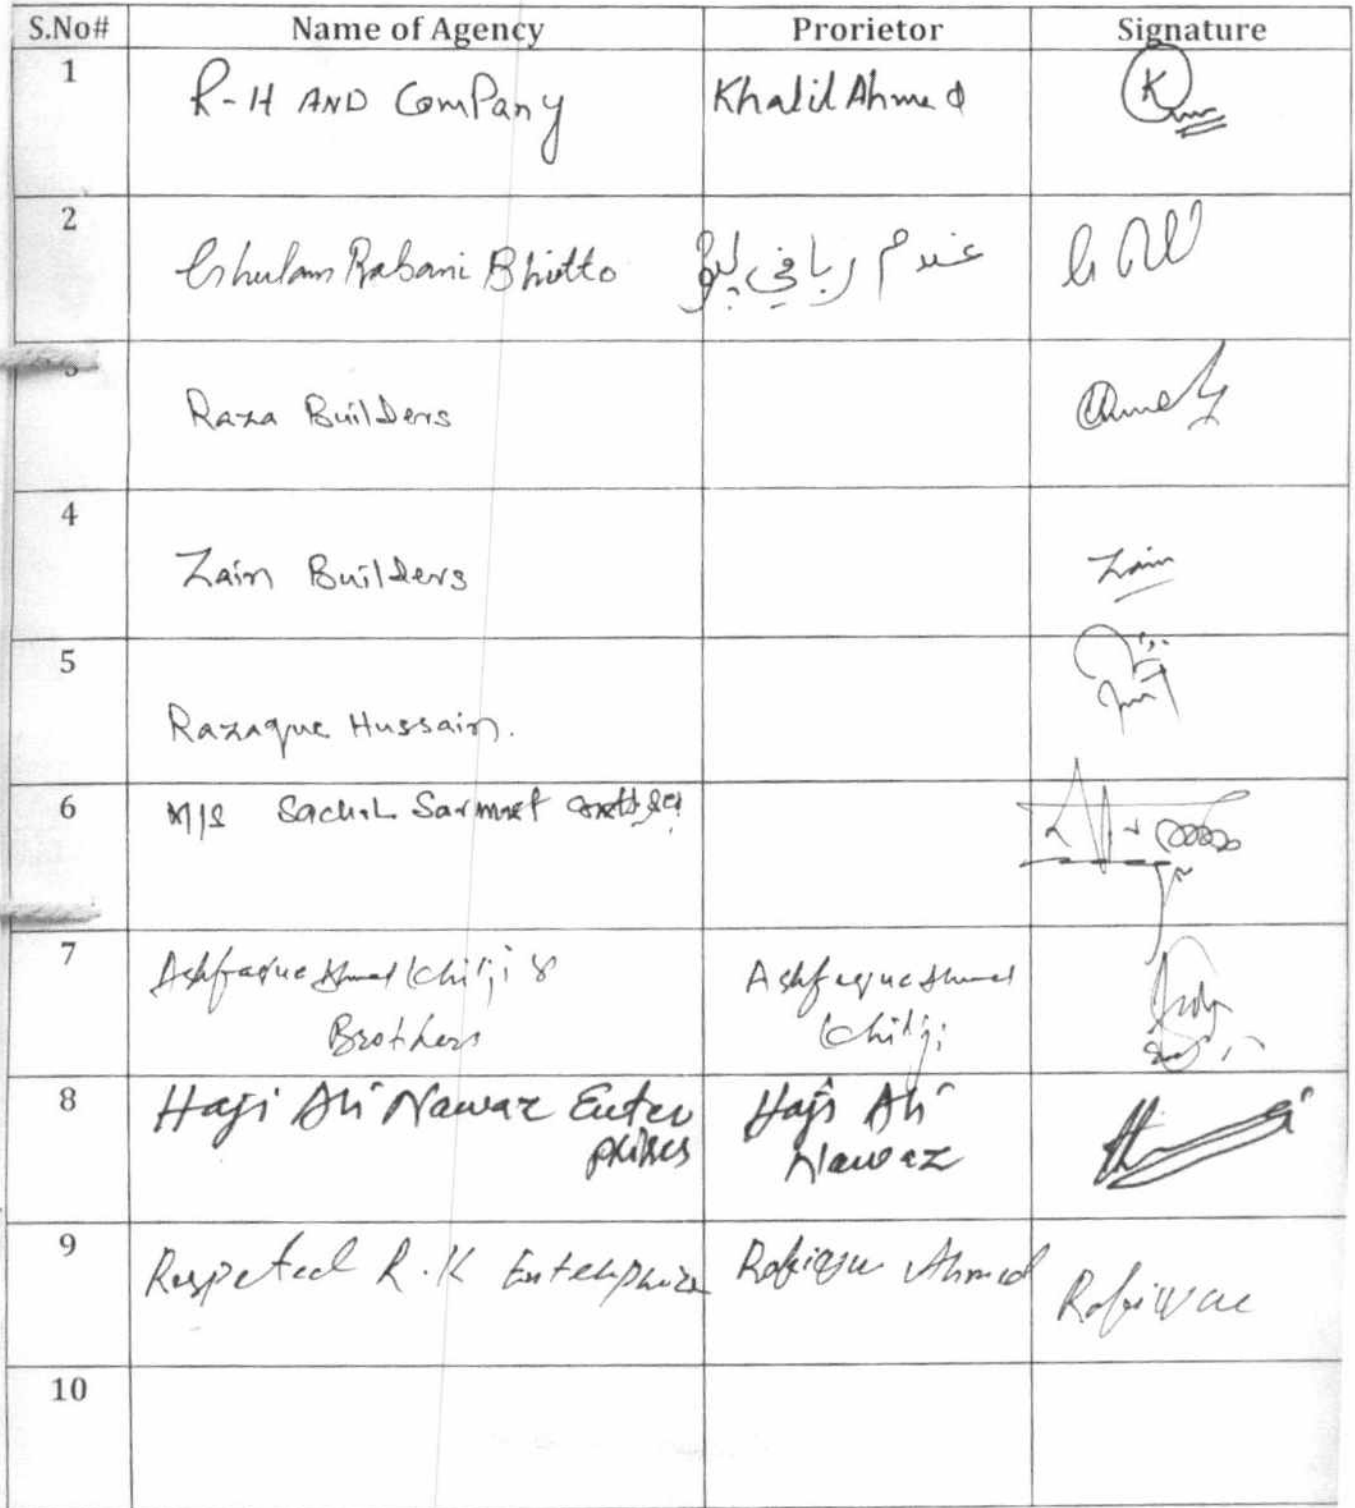 S.No# Name of Agency Prorietor Signature
1 R-H AND Company Khalil Ahmed K
2 Ghulam Rabani Bhutto غلام رباني ڀٽو
3 Raza Builders
4 Zain Builders Zain
5 Razaque Hussain.
6 M/S Sachal Sarmast
7 Ashfaque Ahmed Khilji & Ashfaque Ahmed
Brothers Khilji
8 Haji Ali Nawaz Enter Haji Ali
prises Nawaz
9 Respeted R.K Enterprize Rafique Ahmed Rafique
10